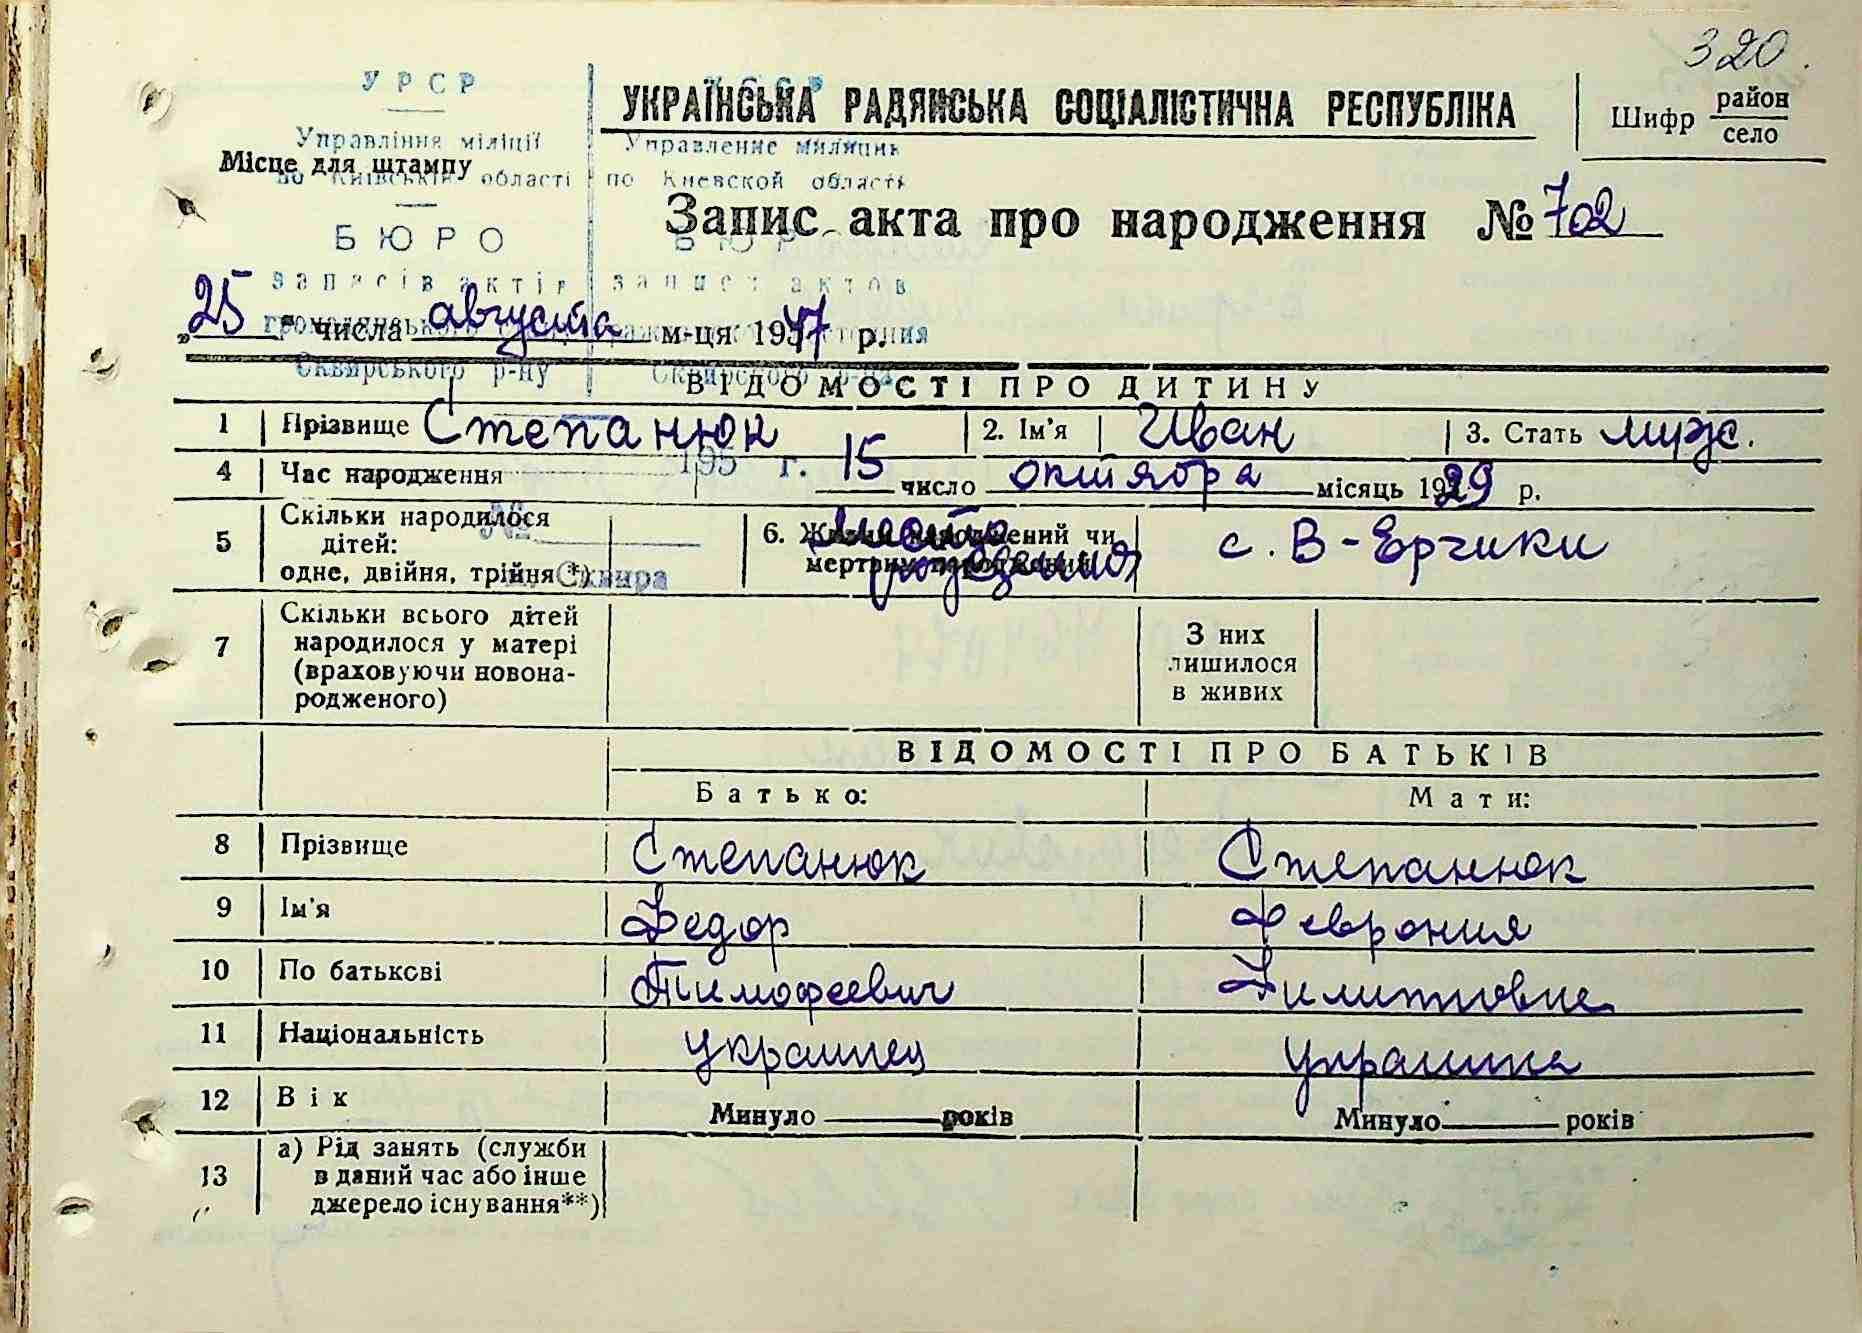 320.
УРСР
УКРАЇНСЬКА РАДЯНСЬКА СОЦІАЛІСТИЧНА РЕСПУБЛІКА
Шифр район село
Управління міліції Управление милиции
Місце для штампу
по Київській області по Киевской области
Запис акта про народження № 702
БЮРО БЮРО
записів актів записи актов
„25“ числа августа м-ця 1957 р.
Сквирського р-ну Сквирского р-на
ВІДОМОСТІ ПРО ДИТИНУ
1 Прізвище Степанюк 2. Ім'я Иван 3. Стать муж.
195 г.
4 Час народження 15 число октября місяць 1929 р.
5 Скільки народилося дітей: одне, двійня, трійня *)
№
г. Сквира
6. Живим народжений чи мертвим народжений
Место рождения с. В-Ерчики
7 Скільки всього дітей народилося у матері (враховуючи новонародженого)
З них лишилося в живих
ВІДОМОСТІ ПРО БАТЬКІВ
Батько: Мати:
8 Прізвище Степанюк Степанюк
9 Ім'я Федор Феврония
10 По батькові Тимофеевич Филиповна
11 Національність украинец украинка
12 Вік Минуло років Минуло років
13 а) Рід занять (служби
в даний час або інше
джерело існування**)